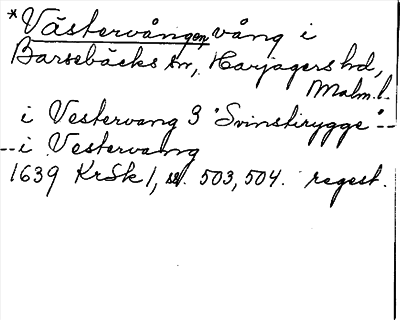 *Västervången, vång i
Barsebäcks sn, Harjagers hd,
Malm. l.
i Vestervang 3 "Svinstirygge" --
-- i Vestervang
1639 KrSk 1, s. 503, 504. regest.